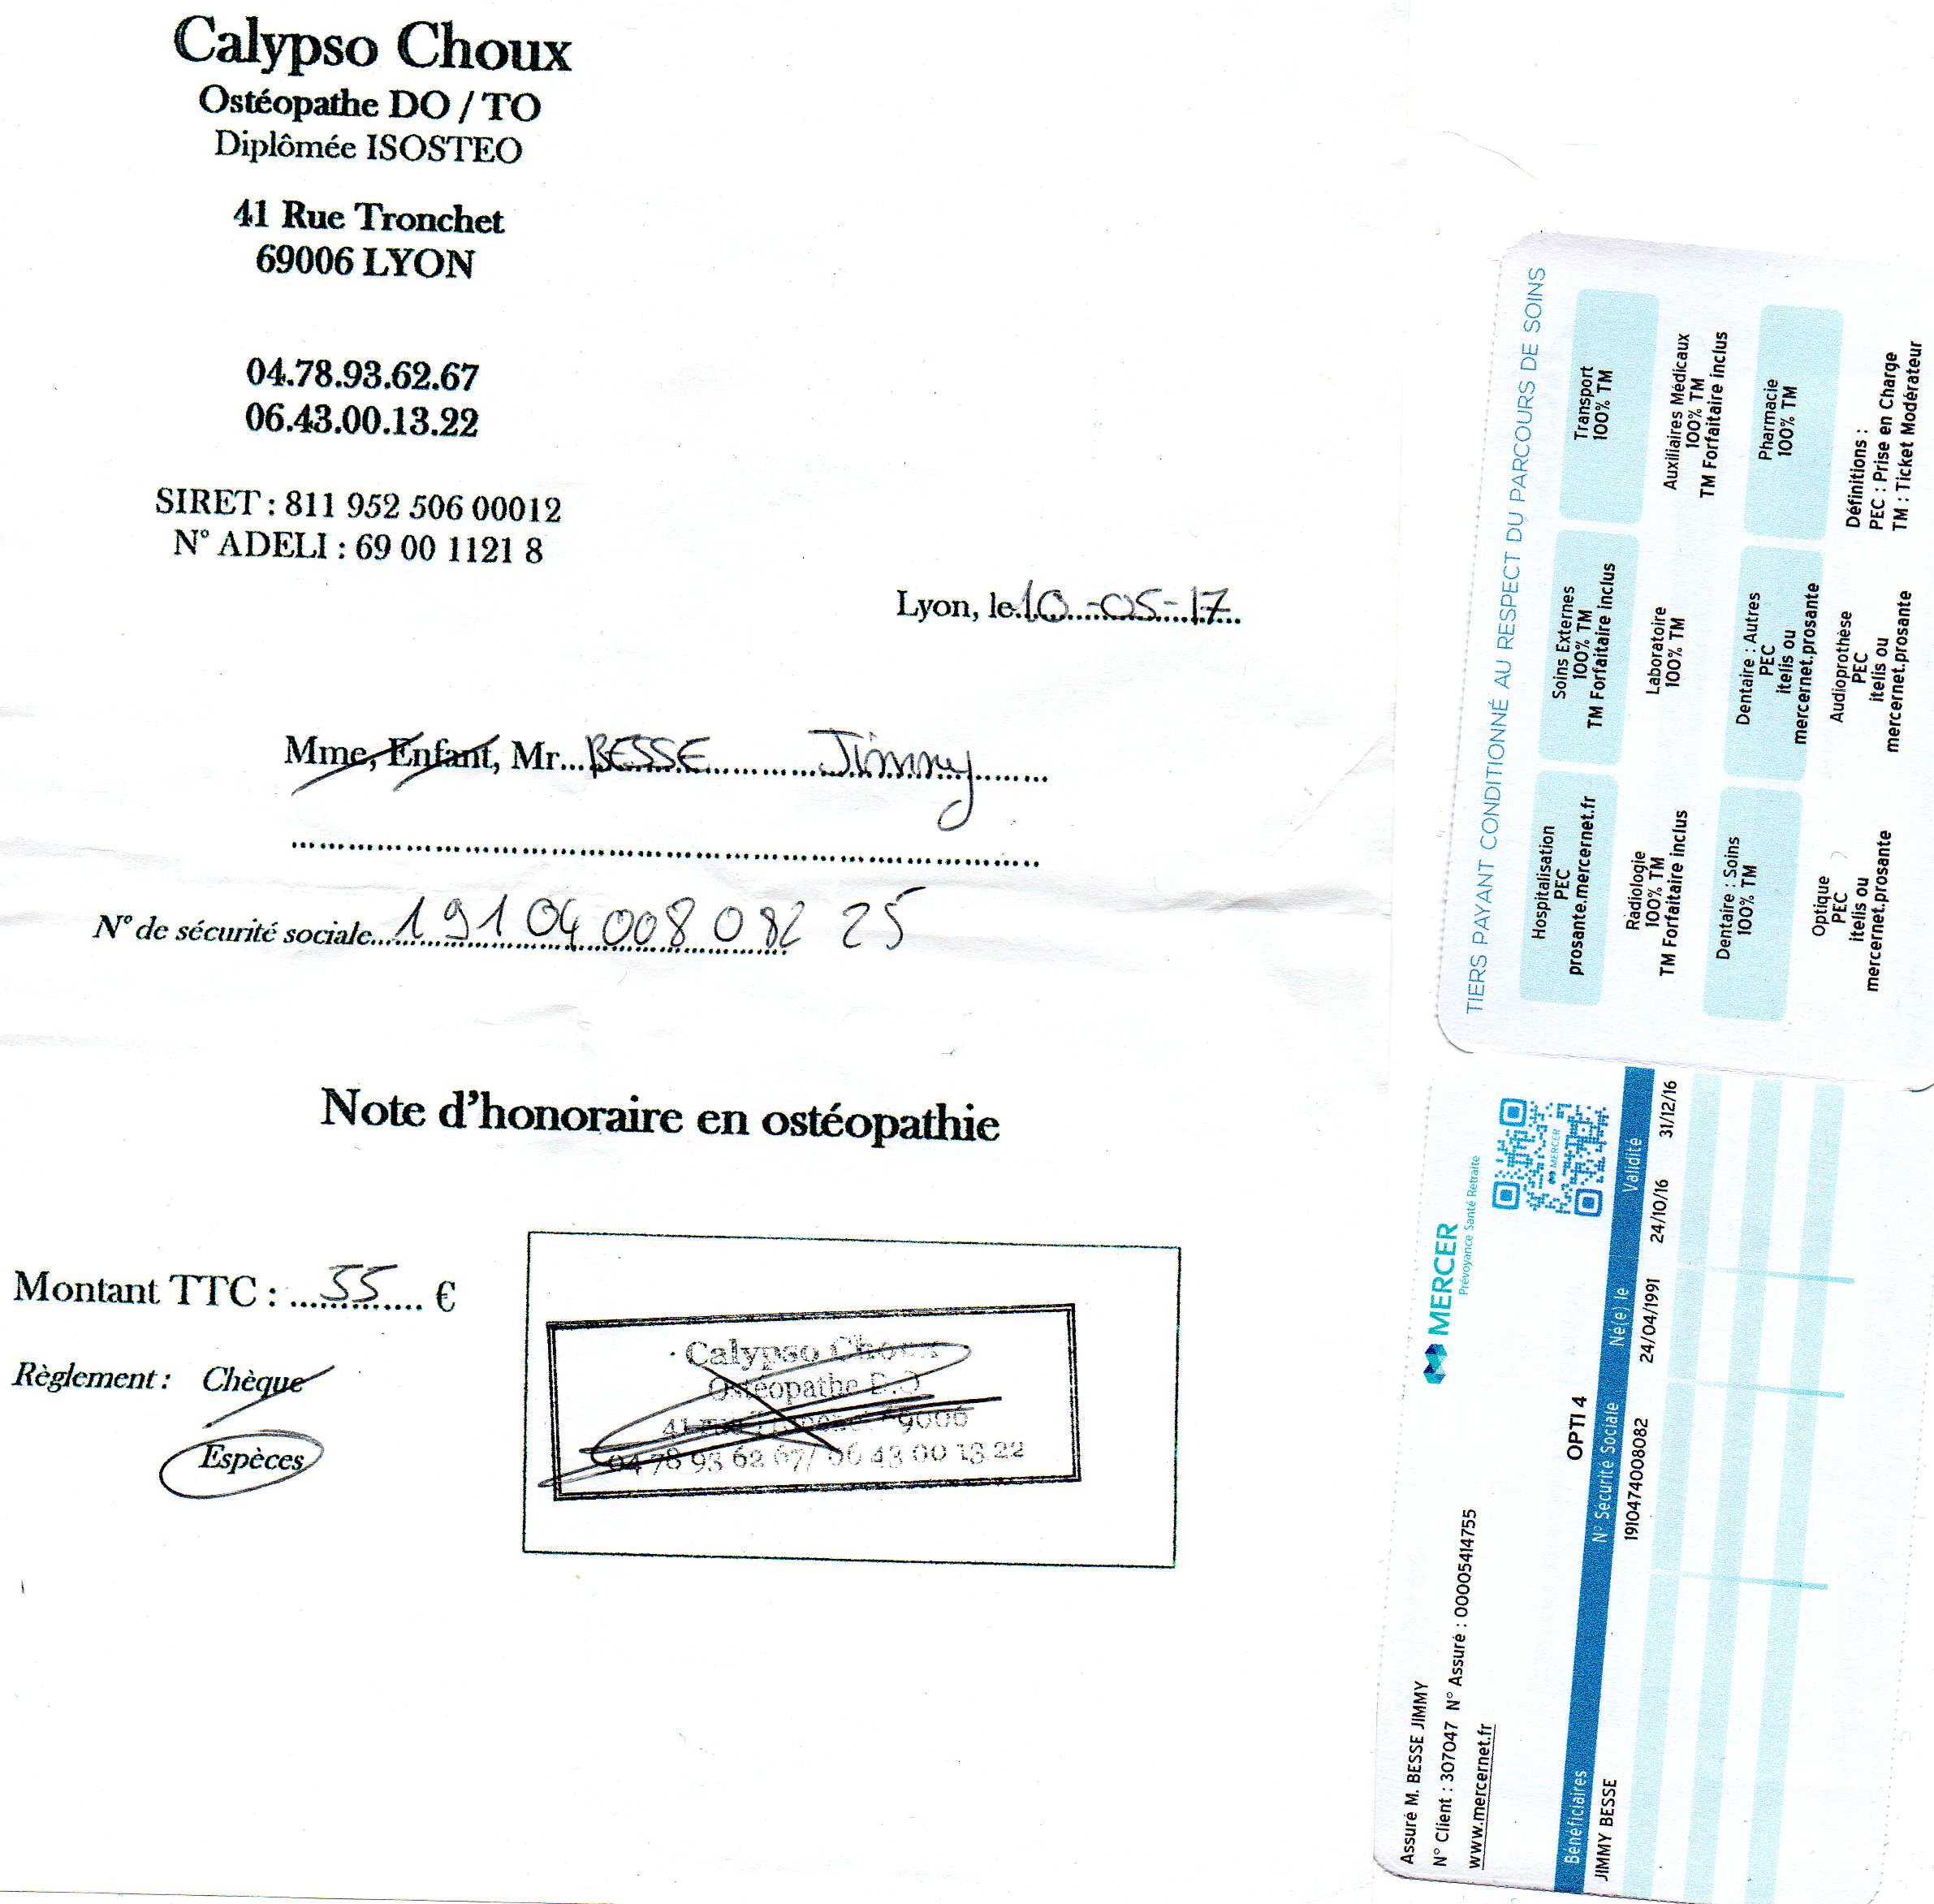 Calypso Choux
Ostéopathe DO / TO
Diplômée ISOSTEO
41 Rue Tronchet
69006 LYON
04.78.93.62.67
06.43.00.13.22
SIRET : 811 952 506 00012
N° ADELI : 69 00 1121 8
Lyon, le 10-05-17
Mme, Enfant, Mr... BESSE Jimmy
N° de sécurité sociale... 1 91 04 008 082 25
Note d'honoraire en ostéopathie
Montant TTC : ... 55 ... €
Règlement : Chèque
Espèces
Calypso Choux
Ostéopathe D.O
41 rue Tronchet 69006
04 78 93 62 67/ 06 43 00 13 22
TIERS PAYANT CONDITIONNÉ AU RESPECT DU PARCOURS DE SOINS
Hospitalisation
PEC
prosante.mercernet.fr
Soins Externes
100% TM
TM Forfaitaire inclus
Transport
100% TM
Radiologie
100% TM
TM Forfaitaire inclus
Laboratoire
100% TM
Auxiliaires Médicaux
100% TM
TM Forfaitaire inclus
Dentaire : Soins
100% TM
Dentaire : Autres
PEC
itelis ou
mercernet.prosante
Pharmacie
100% TM
Optique
PEC
itelis ou
mercernet.prosante
Audioprothèse
PEC
itelis ou
mercernet.prosante
Définitions :
PEC : Prise en Charge
TM : Ticket Modérateur
MERCER
Prévoyance Santé Retraite
MERCER
Assuré M. BESSE JIMMY
N° Client : 307047 N° Assuré : 00005414755
www.mercernet.fr
OPTI 4
Bénéficiaires N° Sécurité Sociale Né(e) le Validité
JIMMY BESSE 1910474008082 24/04/1991 24/10/16 31/12/16